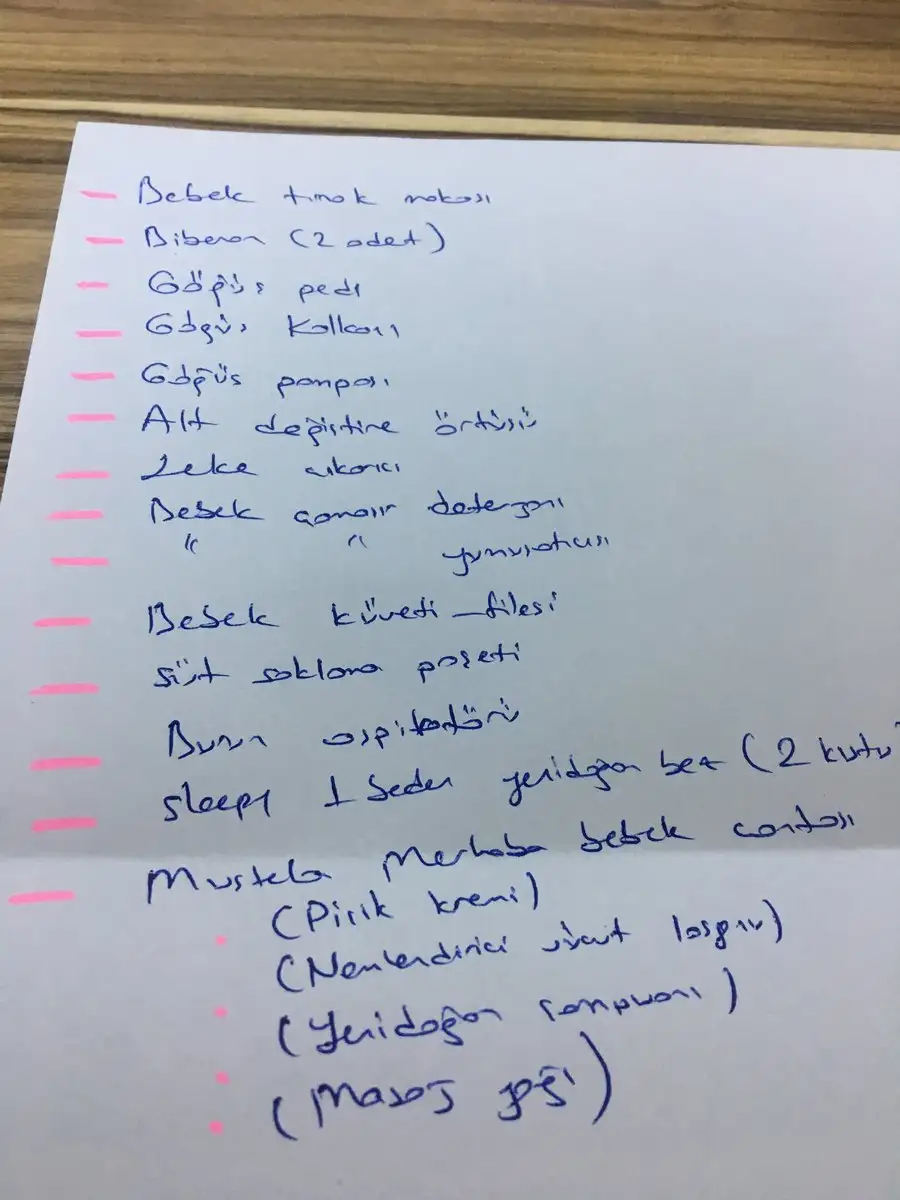 Bebek tırnak makası
Biberon (2 adet)
Göğüs pedi
Göğüs Kalkanı
Göğüs pompası
Alt değiştirme örtüsü
Leke çıkarıcı
Bebek çamaşır deterjanı
" " yumuşatıcısı
Bebek küveti - filesi
Süt saklama poşeti
Burun aspiratörü
Sleepy 1 beden yenidoğan bez (2 kutu)
Mustela Merhaba bebek çantası
(Pişik kremi)
(Nemlendirici vücut losyonu)
(Yenidoğan şampuanı)
(Masaj yağı)